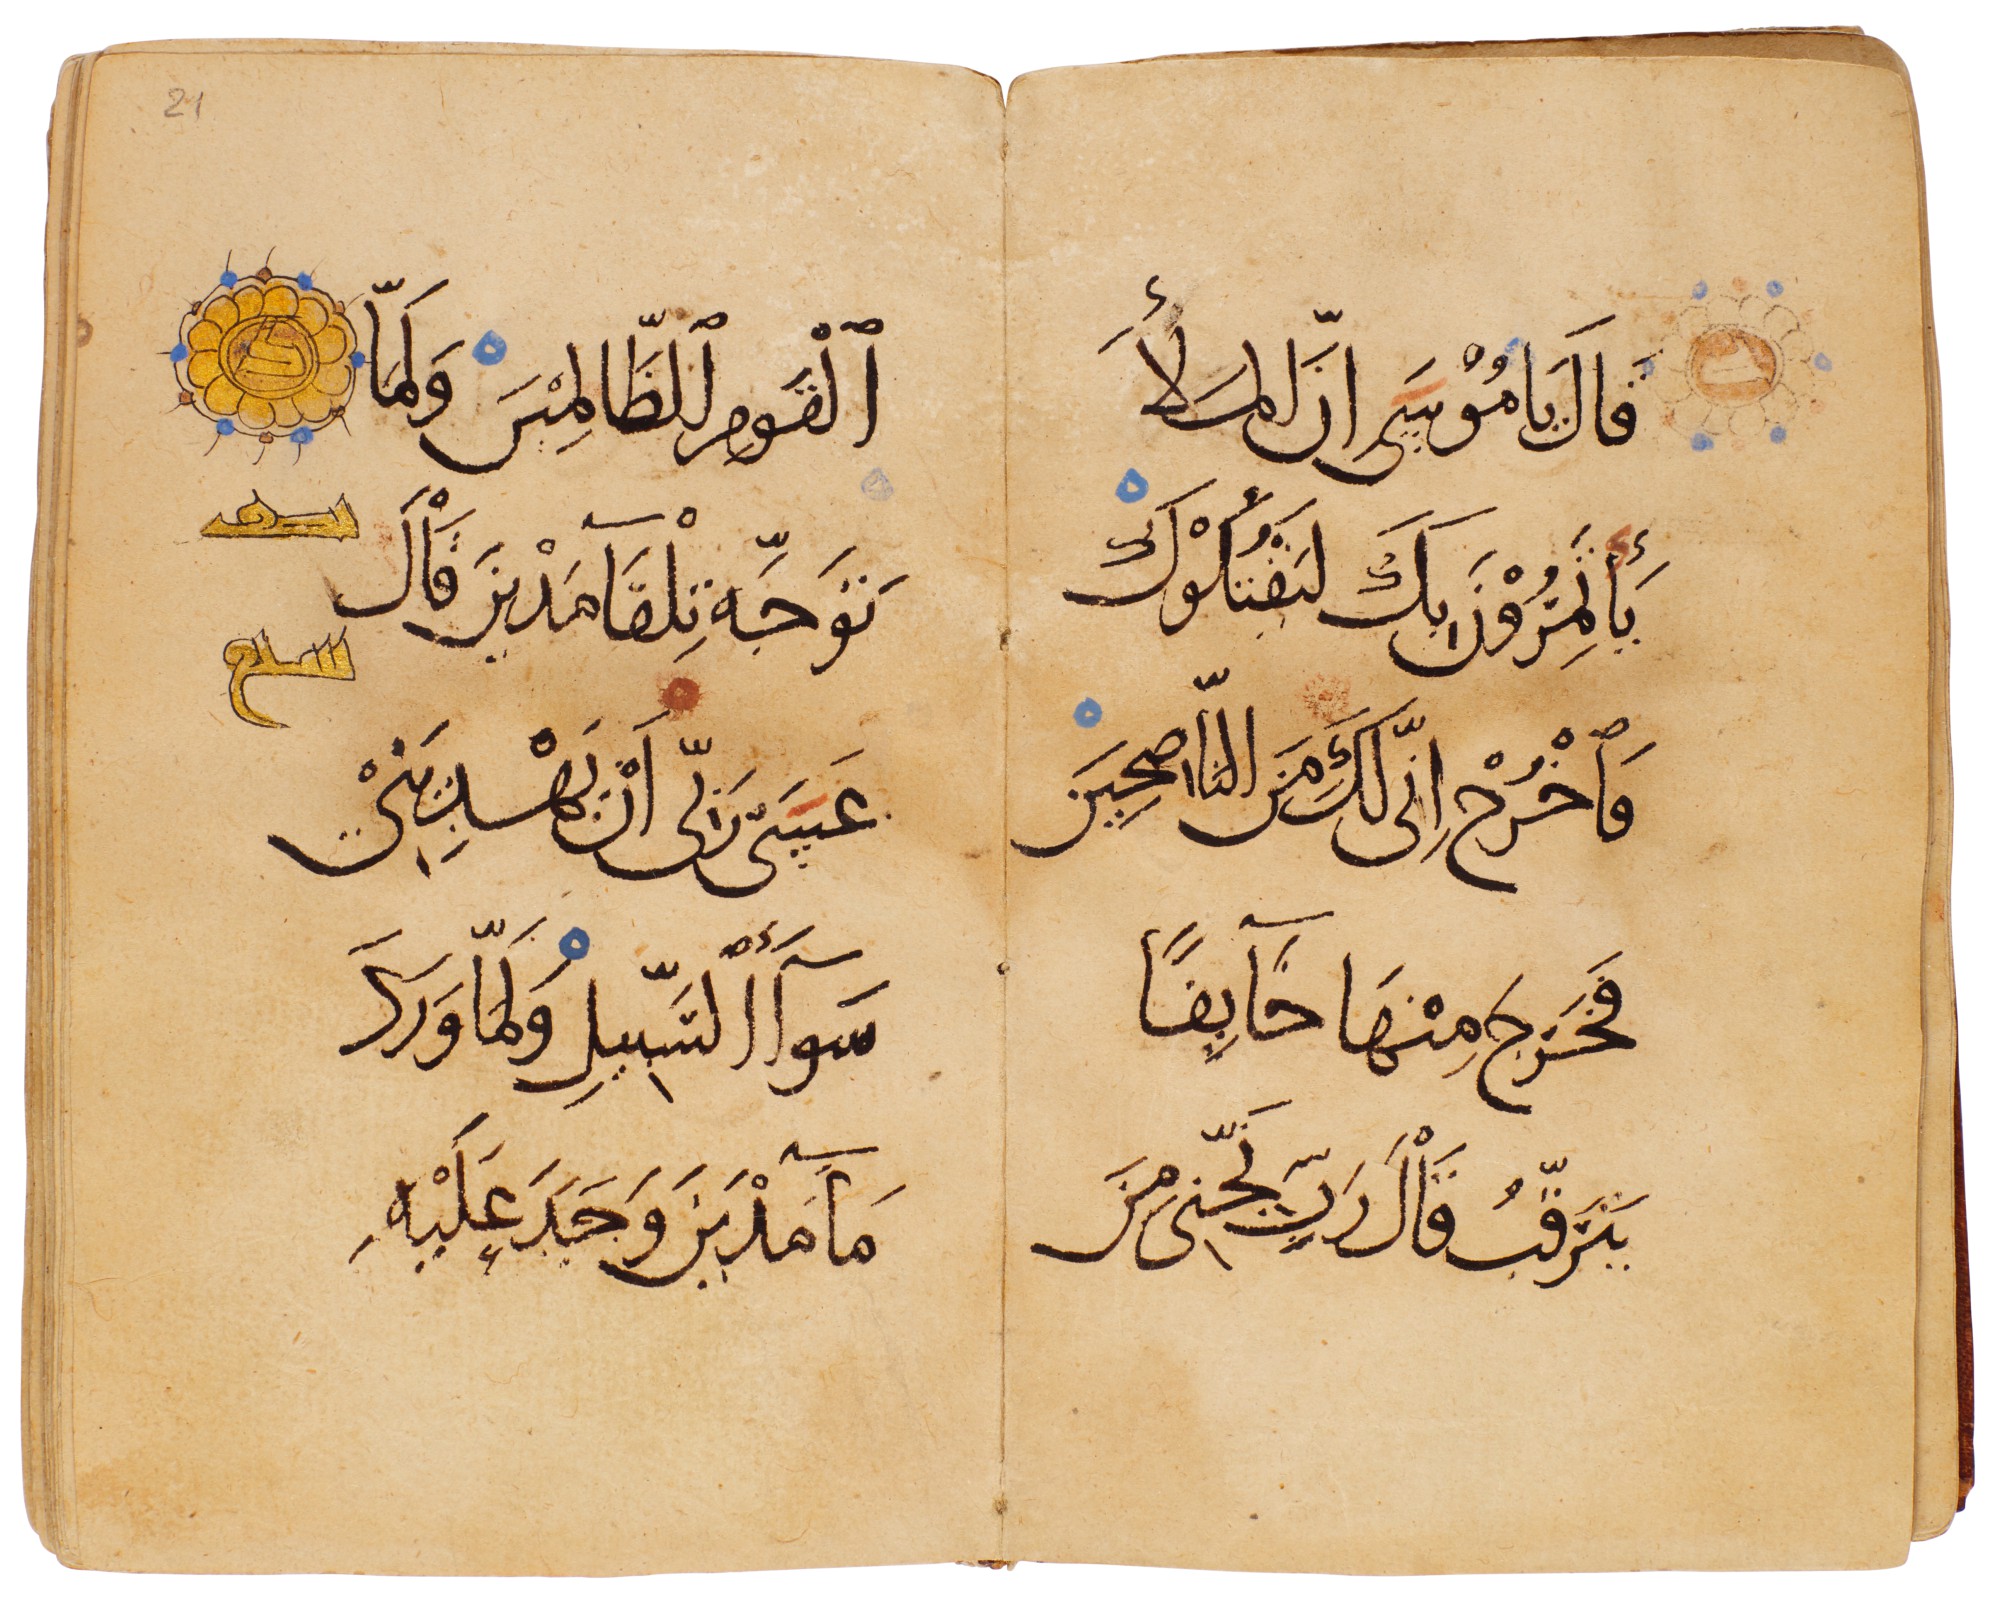 قَالَ يَا مُوْسَى اِنَّ الْمَلَأَ
يَأْتَمِرُوْنَ بِكَ لِيَقْتُلُوْكَ
فَٱخْرُجْ اِنِّى لَكَ مِنَ النَّاصِحِيْنَ
فَخَرَجَ مِنْهَا خَآيِفًا
يَتَرَقَّبُ قَالَ رَبِّ نَجِّنِى مِنَ
21
ٱلْقَوْمِ ٱلظَّالِمِيْنَ وَلَمَّا
تَوَجَّهَ تِلْقَآ مَدْيَنَ قَالَ
عَسَىٰ رَبِّى أَنْ يَهْدِيَنِىْ
سَوَآءَ ٱلسَّبِيلِ وَلَمَّا وَرَدَ
مَآ مَدْيَنَ وَجَدَ عَلَيْهِ